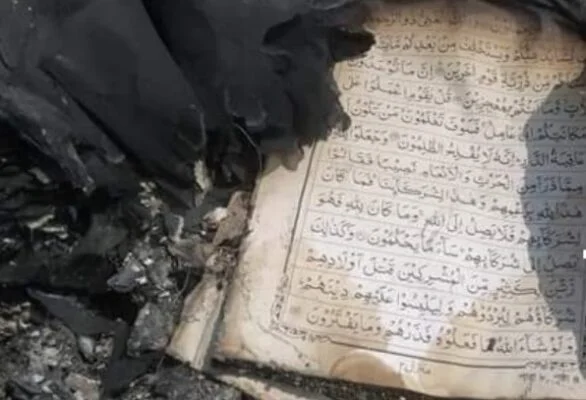 وَيَسْتَخْلِفْ مِنْ بَعْدِكُمْ مَا
مِنْ ذُرِّيَّةِ قَوْمٍ اٰخَرِيْنَ اِنَّ مَا تُوْعَدُوْنَ
وَّمَا اَنْتُمْ بِمُعْجِزِيْنَ قُلْ يٰقَوْمِ اعْمَلُوْا عَلٰى
مَكَانَتِكُمْ اِنِّيْ عَامِلٌ فَسَوْفَ تَعْلَمُوْنَ مَنْ تَكُوْنُ
عَاقِبَةُ الدَّارِ اِنَّهٗ لَا يُفْلِحُ الظّٰلِمُوْنَ وَجَعَلُوْا
مِمَّا ذَرَاَ مِنَ الْحَرْثِ وَالْاَنْعَامِ نَصِيْبًا فَقَالُوْا
هٰذَا لِلّٰهِ بِزَعْمِهِمْ وَهٰذَا لِشُرَكَآئِنَا فَمَا كَانَ
لِشُرَكَآئِهِمْ فَلَا يَصِلُ اِلَى اللّٰهِ وَمَا كَانَ لِلّٰهِ فَهُوَ
يَصِلُ اِلٰى شُرَكَآئِهِمْ سَآءَ مَا يَحْكُمُوْنَ وَكَذٰلِكَ
زَيَّنَ لِكَثِيْرٍ مِّنَ الْمُشْرِكِيْنَ قَتْلَ اَوْلَادِهِمْ
شُرَكَآؤُهُمْ لِيُرْدُوْهُمْ وَلِيَلْبِسُوْا عَلَيْهِمْ دِيْنَهُمْ
وَلَوْ شَآءَ اللّٰهُ مَا فَعَلُوْهُ فَذَرْهُمْ وَمَا يَفْتَرُوْنَ
منزل ٢